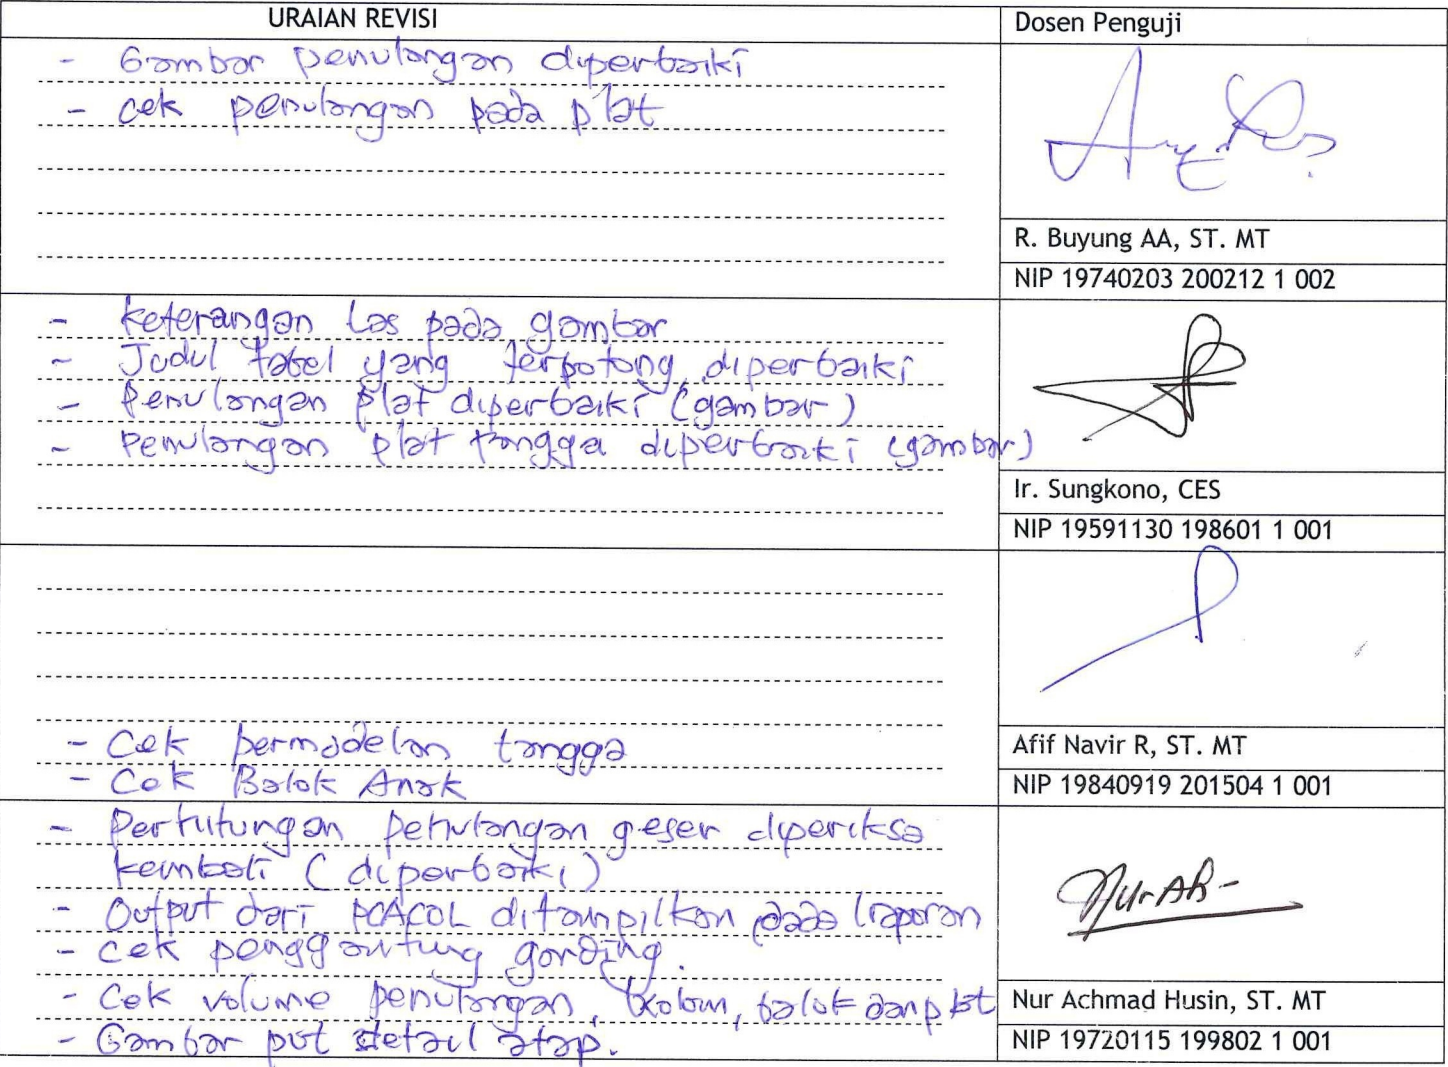 URAIAN REVISI
Dosen Penguji
- Gambar penulangan diperbaiki
- cek penulangan pada plat
R. Buyung AA, ST. MT
NIP 19740203 200212 1 002
- keterangan Las pada gambar
- Judul tabel yang terpotong diperbaiki
- Penulangan plat diperbaiki (gambar)
- Penulangan plat tangga diperbaiki (gambar)
Ir. Sungkono, CES
NIP 19591130 198601 1 001
- Cek permodelan tangga
- Cek Balok Anak
Afif Navir R, ST. MT
NIP 19840919 201504 1 001
- Perhitungan penulangan geser diperiksa
kembali (diperbaiki)
- Output dari PCACOL ditampilkan pada laporan
- Cek penggantung gording.
- Cek volume penulangan, kolom, balok dan plat
- Gambar pot detail atap.
Nur Achmad Husin, ST. MT
NIP 19720115 199802 1 001